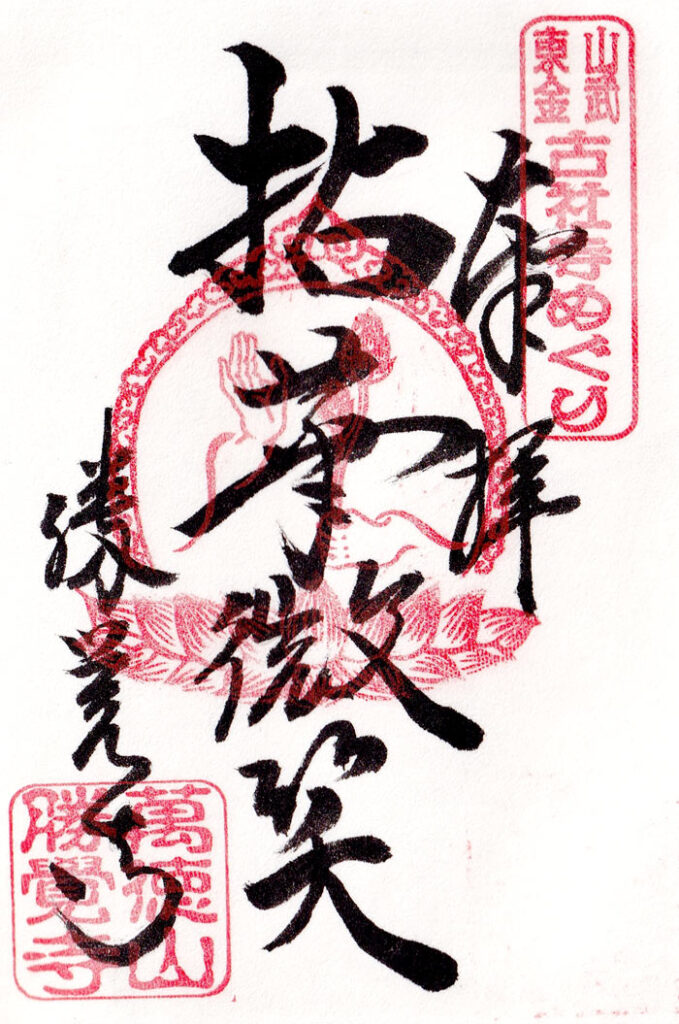 山武
東金
古社寺めぐり
奉
拝
拈華微笑
勝覚寺
萬徳山
勝覺寺